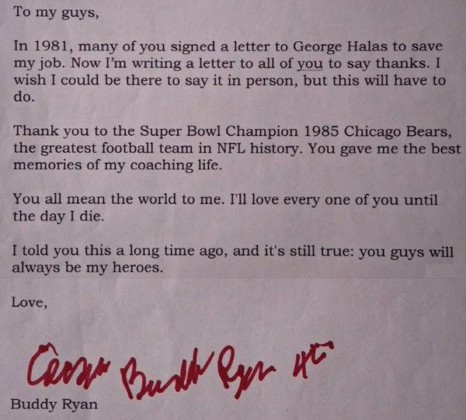 To my guys,
In 1981, many of you signed a letter to George Halas to save
my job. Now I'm writing a letter to all of you to say thanks. I
wish I could be there to say it in person, but this will have to
do.
Thank you to the Super Bowl Champion 1985 Chicago Bears,
the greatest football team in NFL history. You gave me the best
memories of my coaching life.
You all mean the world to me. I'll love every one of you until
the day I die.
I told you this a long time ago, and it's still true: you guys will
always be my heroes.
Love,
Buddy Ryan
Buddy Ryan